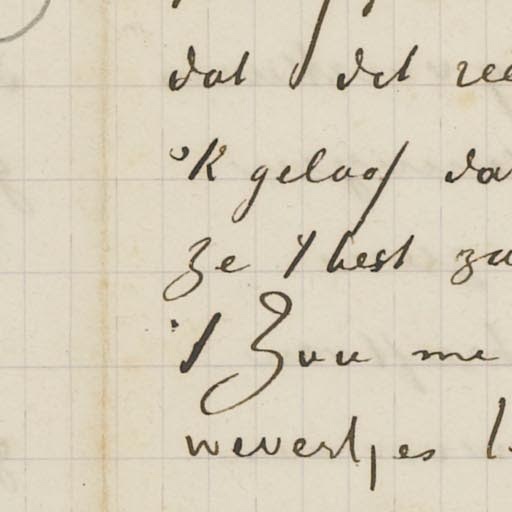 dat dit ree
'k geloof da
ze 't best zu
't Zou me
wevertjes